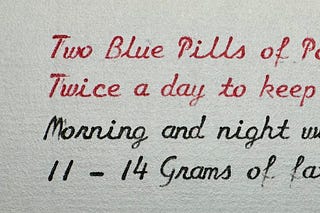 Two Blue Pills of
Twice a day to keep
Morning and night
11 – 14 Grams of